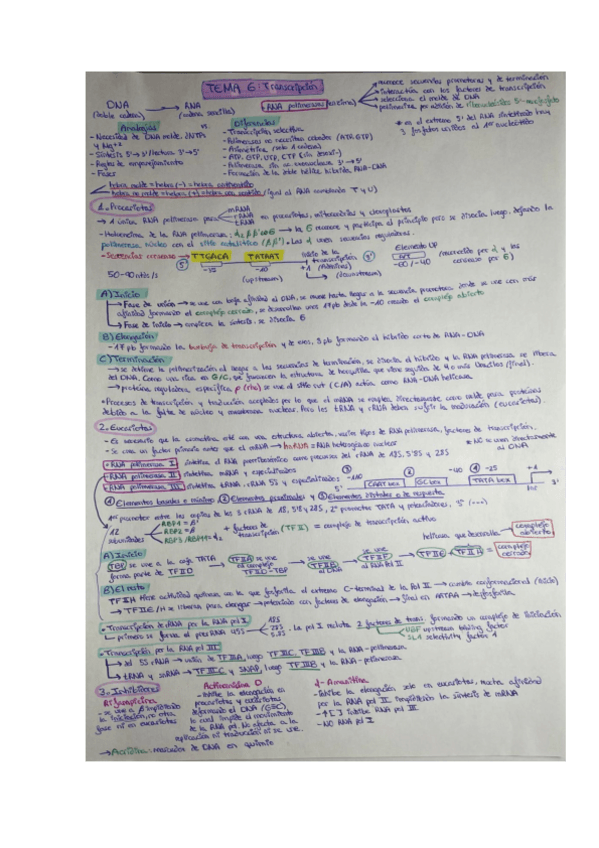 TEMA 6: Transcripción
DNA → RNA
(doble cadena) (cadena sencilla)
RNA polimerasa (enzima)
reconoce secuencias promotoras y de terminación
interacción con los factores de transcripción
selecciona el molde de DNA
polimeriza por adición de ribonucleótidos 5'-trifosfato
* en el extremo 5' del RNA sintetizado hay
3 fosfatos unidos al 1er nucleótido
Analogías vs Diferencias
- Necesidad de DNA molde, NTPs
y Mg+2
- Síntesis 5'→3'/lectura 3'→5'
- Reglas de emparejamiento
- Fases
- Transcripción selectiva
- Polimerasa no necesitan cebador (ATP, GTP)
- Asimétrica (solo 1 cadena)
- ATP, GTP, UTP, CTP
- Polimerasa sin ac. exonucleasa 3'→5'
- Formación de la doble hélice híbrida RNA-DNA
hebra molde = hebra (-) = hebra antisentido
hebra no molde = hebra (+) = hebra con sentido (igual al RNA cambiando T y U)
1. Procariotas
→ 1 única RNA polimerasa para mRNA
tRNA
rRNA
en procariotas, mitocondrias y cloroplastos
- Holoenzima de la RNA polimerasa:
polimerasa núcleo con el sitio catalítico
- Secuencias consenso → TTGACA TATAAT
5' -35 -10
(upstream)
inicio de la
transcripción
+1
(downstream)
3'
Elemento UP
-60/-40
50-90 ntds/s
A) Inicio
→ Fase de unión → se une con baja afinidad al DNA, se mueve hasta llegar a la secuencia promotora donde se une con más
afinidad formando el complejo cerrado, se desenrollan unos 17pb desde la -10 creando el complejo abierto
→ Fase de inicio → empieza la síntesis, se disocia σ
B) Elongación
- 17 pb formando la burbuja de transcripción y de esos, 8 pb formando el híbrido corto de RNA-DNA
C) Terminación
→ se detiene la polimerización al llegar a las secuencias de terminación, se disocia el híbrido y la RNA polimerasa se libera
del DNA. Como una rica en G/C, que favorecen la estructura de horquilla que viene seguida de 4 o más Uracilos (final).
→ proteína reguladora específica, ρ (rho) se une al sitio rut (C/A) actúa como RNA-DNA helicasa.
* Procesos de transcripción y traducción acoplados por lo que el mRNA se emplea directamente como molde para proteínas
debido a la falta de núcleo y membrana nuclear. Pero los tRNA y rRNA deben sufrir la maduración (eucariotas).
2. Eucariotas
- Es necesario que la cromatina esté con una estructura abierta, varios tipos de RNA polimerasa, factores de transcripción.
- Se crea un factor primario antes que el mRNA → hnRNA = RNA heterogéneo nuclear
* NO se une directamente
al DNA
- RNA polimerasa I → sintetiza el RNA prerribosómico como precursor del rRNA de 18S, 5'8S y 28S
- RNA polimerasa II → sintetiza mRNA y especializados
- RNA polimerasa III → sintetiza tRNA, rRNA 5S y especializados
③ ② -110 ① -25 +1
5' CAAT box GC box TATA box Inr 3'
① Elementos basales o mínimos, ② Elementos proximales y ③ Elementos distales o de respuesta
1er promotor entre las copias de los 3 rRNA de 18, 5'8 y 28S, 2º promotor TATA y potenciadores, 3º (...)
12
subunidades
RBP1 = β'
RBP2 = β
RBP3/RBP11 = α2
+ factores de
transcripción (TFII) = complejo de transcripción activo
helicasa que desenrolla → complejo
abierto
A) Inicio
TBP se une a la caja TATA
forma parte de TFIID
→ TFIIA se une
al complejo
TFIID-TBP
→ se une
TFIIB
al DNA
→ se une
TFIIF
al RNA Pol II
→ TFIIE → TFIIH = complejo
cerrado
B) El resto
TFIIH tiene actividad quinasa con la que fosforila el extremo C-terminal de la Pol II → cambio conformacional (inicio)
→ TFIIE/H se liberan para elongar → potenciado con factores de elongación → final en AATAAA → desfosforila
- Transcripción de rRNA por la RNA pol I
→ primero se forma el pre rRNA 45S
18S
28S
5.8S
. La pol I recluta 2 factores de trans. formando un complejo de iniciación
UBF upstream binding factor
SL1 selectivity factor 1
- Transcripción por la RNA pol III
→ del 5S rRNA → unión de TFIIIA, luego TFIIIC, TFIIIB y la RNA-polimerasa
→ tRNA y snRNA → TFIIIC y SNAP, luego TFIIIB y la RNA-polimerasa
3. Inhibidores
Rifampicina
- se une a β impidiendo
la iniciación, no otra
fase ni en eucariotas
Actinomicina D
- Inhibe la elongación en
procariotas y eucariotas
deformando el DNA (G≡C)
lo cual impide el movimiento
de la RNA pol. No afecta a la
replicación ni traducción ni se une...
α-Amanitina
- Inhibe la elongación solo en eucariotas, mucha afinidad
por la RNA pol II impidiendo la síntesis de mRNA
- ↑[ ] inhibe RNA pol III
- NO RNA pol I
→ Acridina: marcador de DNA en química